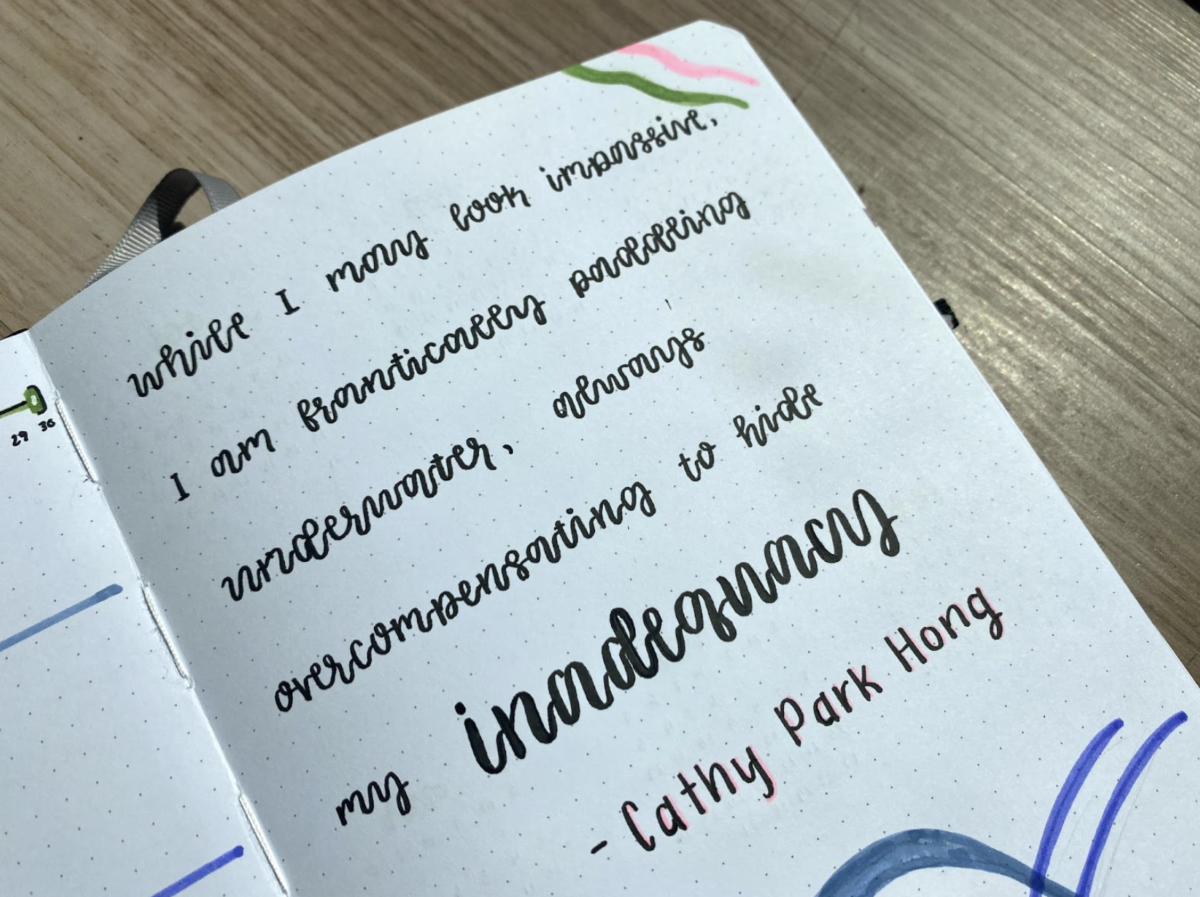 while I may look impassive,
I am frantically paddling
underwater, always
overcompensating to hide
my inadequacy
- Cathy Park Hong
29 30